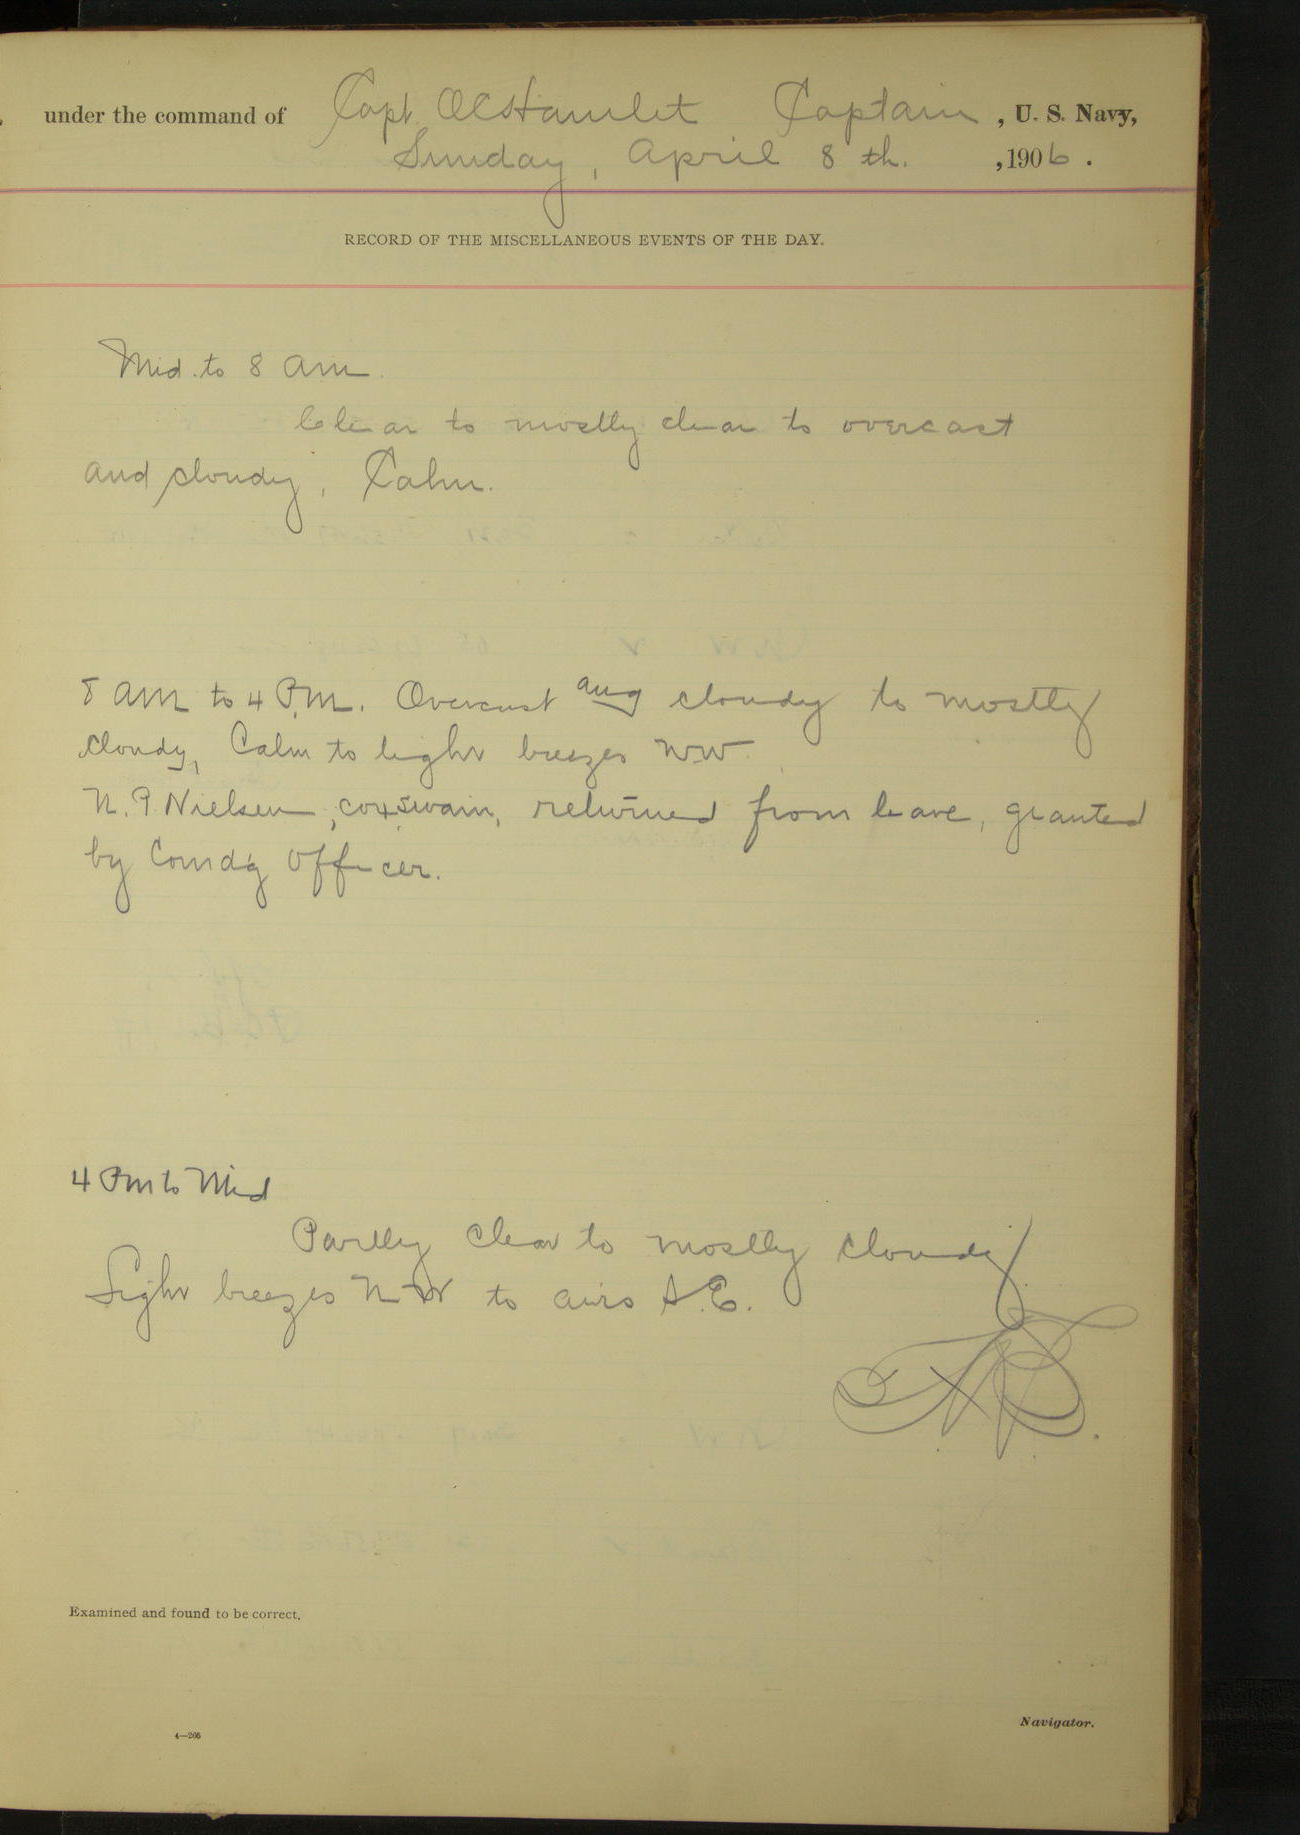 under the command of Capt. O C Hamlet Captain, U. S. Navy,
Sunday, April 8 th. ,1906.
RECORD OF THE MISCELLANEOUS EVENTS OF THE DAY.
Mid. to 8 am.
Clear to mostly clear to overcast
and cloudy, Calm.
8 AM to 4 P.M. Overcast and cloudy to mostly
cloudy, Calm to light breezes NW.
N. P. Nielsen, coxswain, returned from leave, granted
by Comd'g Officer.
4 Pm to Mid
Partly clear to mostly cloudy
Light breezes NW to airs S.E.
Examined and found to be correct.
4—266
Navigator.